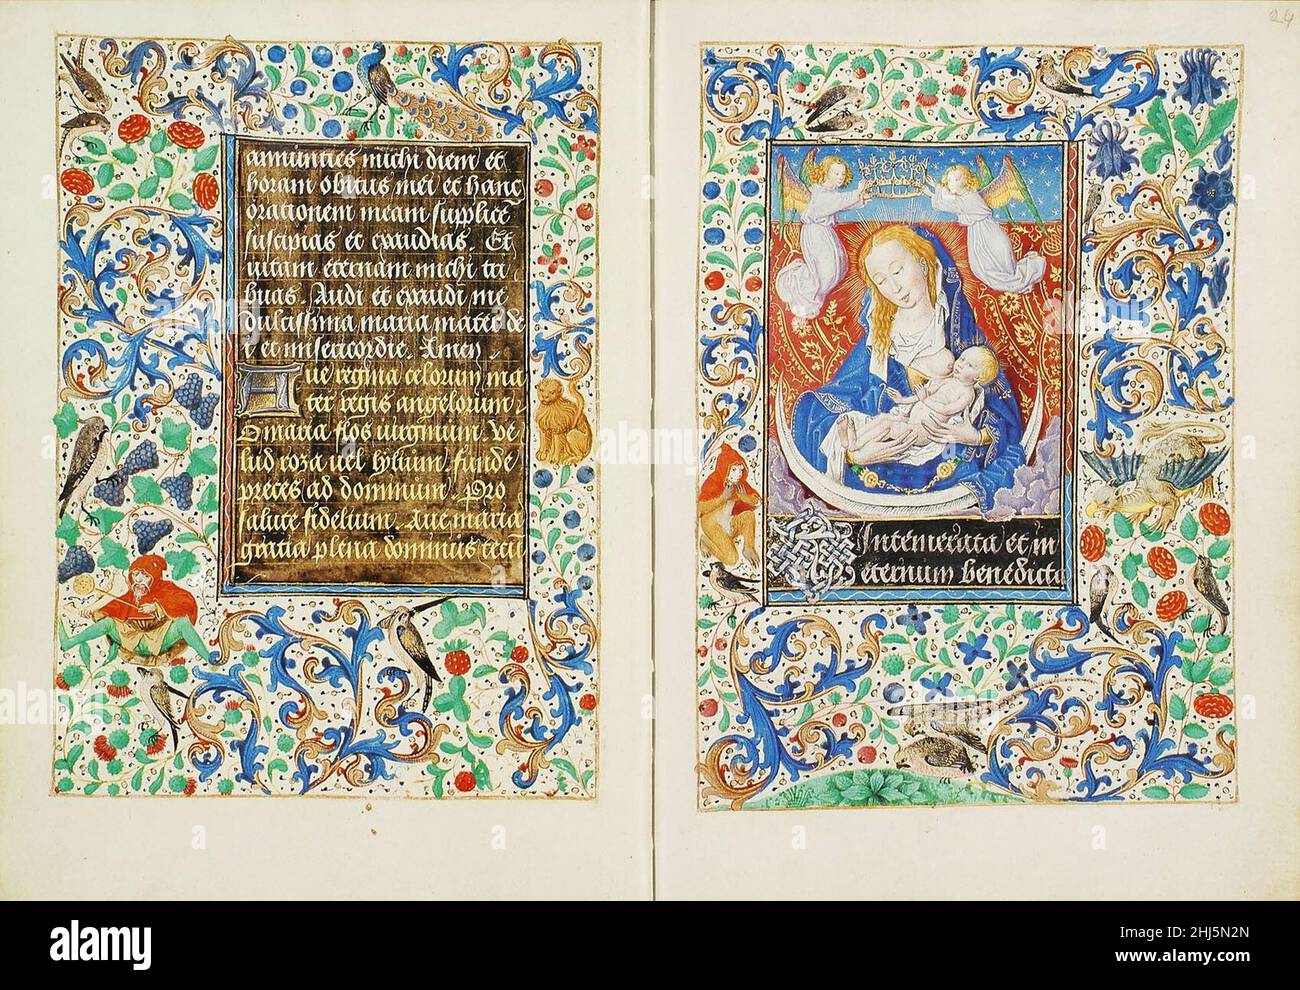 24
annuncies michi diem et
horam obitus mei et hanc
orationem meam supplicē
suscipias et exaudias. Et
vitam eternam michi tri
buas. Audi et exaudi me
dulcissima maria mater de
i et misericordie. Amen
Aue regina celorum ma
ter regis angelorum
O maria flos uirginum. ve
lud roza uel lylium funde
preces ad dominum. Pro
salute fidelium. Aue maria
gratia plena dominus tecū
O Intemerata et in
eternum benedicta
alamy
a
alamy
Image ID: 2HJ5N2N
www.alamy.com